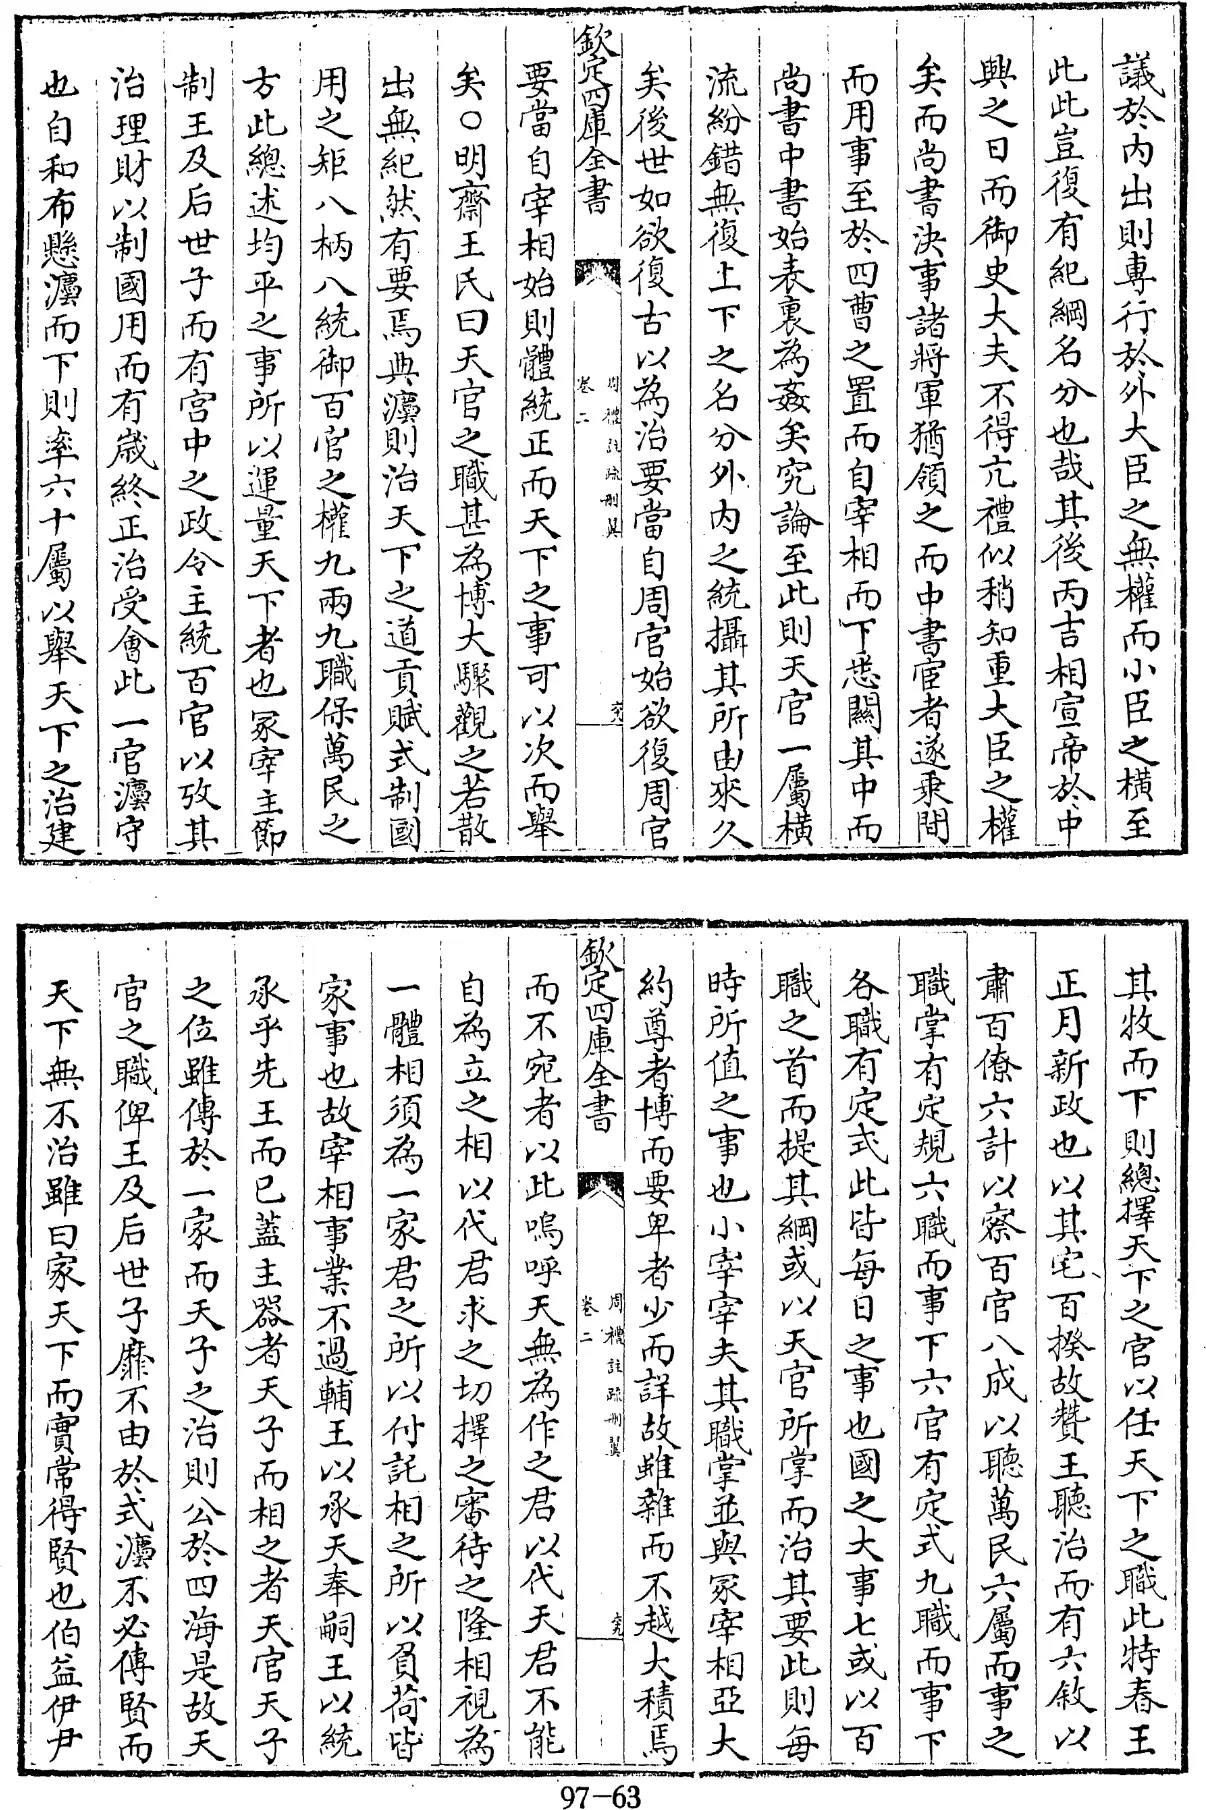 議於内出則專行於外大臣之無權而小臣之横至
此此豈復有紀綱名分也哉其後丙吉相宣帝於中
興之日而御史大夫不得亢禮似稍知重大臣之權
矣而尚書決事諸將軍猶領之而中書宦者遂乗間
而用事至於四曹之置而自宰相而下悉關其中而
尚書中書始表裏為姦矣究論至此則天官一屬横
流紛錯無復上下之名分外内之統攝其所由來久
矣後世如欲復古以為治要當自周官始欲復周官
欽定四庫全書
周禮註疏刪翼
卷二
要當自宰相始則體統正而天下之事可以次而舉
矣○明齋王氏曰天官之職甚為博大驟觀之若散
出無紀然有要焉典灋則治天下之道貢賦式制國
用之矩八柄八統御百官之權九兩九職保萬民之
方此總述均平之事所以運量天下者也冢宰主節
制王及后世子而有宫中之政令主統百官以攷其
治理財以制國用而有歲終正治受會此一官灋守
也自和布懸灋而下則率六十屬以舉天下之治建
其牧而下則總擇天下之官以任天下之職此特春王
正月新政也以其宅百揆故贊王聽治而有六敘以
肅百僚六計以察百官八成以聽萬民六屬而事之
職掌有定規六職而事下六官有定式九職而事下
各職有定式此皆每日之事也國之大事七或以百
職之首而提其綱或以天官所掌而治其要此則每
時所值之事也小宰宰夫其職掌並與冢宰相亞大
約尊者博而要卑者少而詳故雖雜而不越大積焉
欽定四庫全書
周禮註疏刪翼
卷二
而不宛者以此嗚呼天無為作之君以代天君不能
自為立之相以代君求之切擇之審待之隆相視為
一體相須為一家君之所以付託相之所以負荷皆
家事也故宰相事業不過輔王以承天奉嗣王以統
承乎先王而已蓋主器者天子而相之者天官天子
之位雖傳於一家而天子之治則公於四海是故天
官之職俾王及后世子靡不由於式灋不必傳賢而
天下無不治雖曰家天下而實常得賢也伯益伊尹
97-63